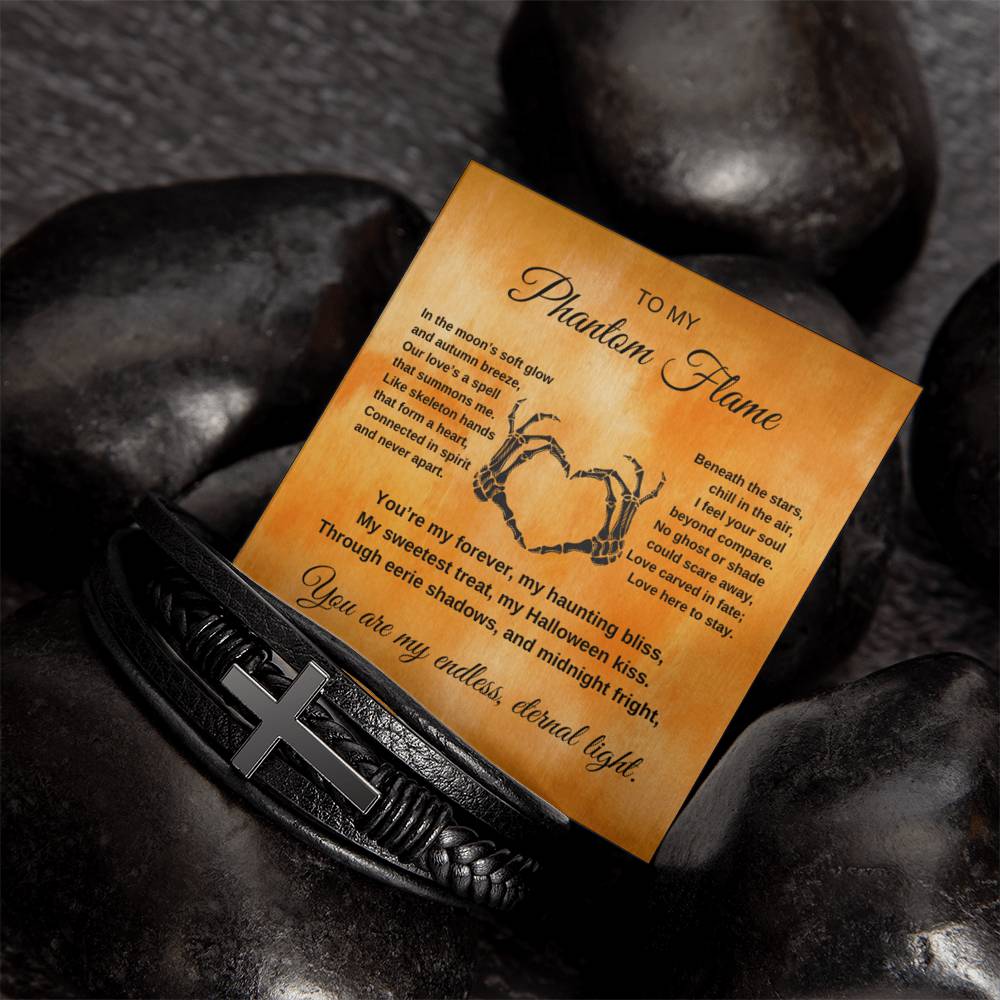 TO MY
Phantom Flame
In the moon's soft glow
and autumn breeze,
Our love's a spell
that summons me.
Like skeleton hands
that form a heart,
Connected in spirit
and never apart.
Beneath the stars,
chill in the air,
I feel your soul
beyond compare.
No ghost or shade
could scare away,
Love carved in fate;
Love here to stay.
You're my forever, my haunting bliss,
My sweetest treat, my Halloween kiss.
Through eerie shadows, and midnight fright,
You are my endless, eternal light.